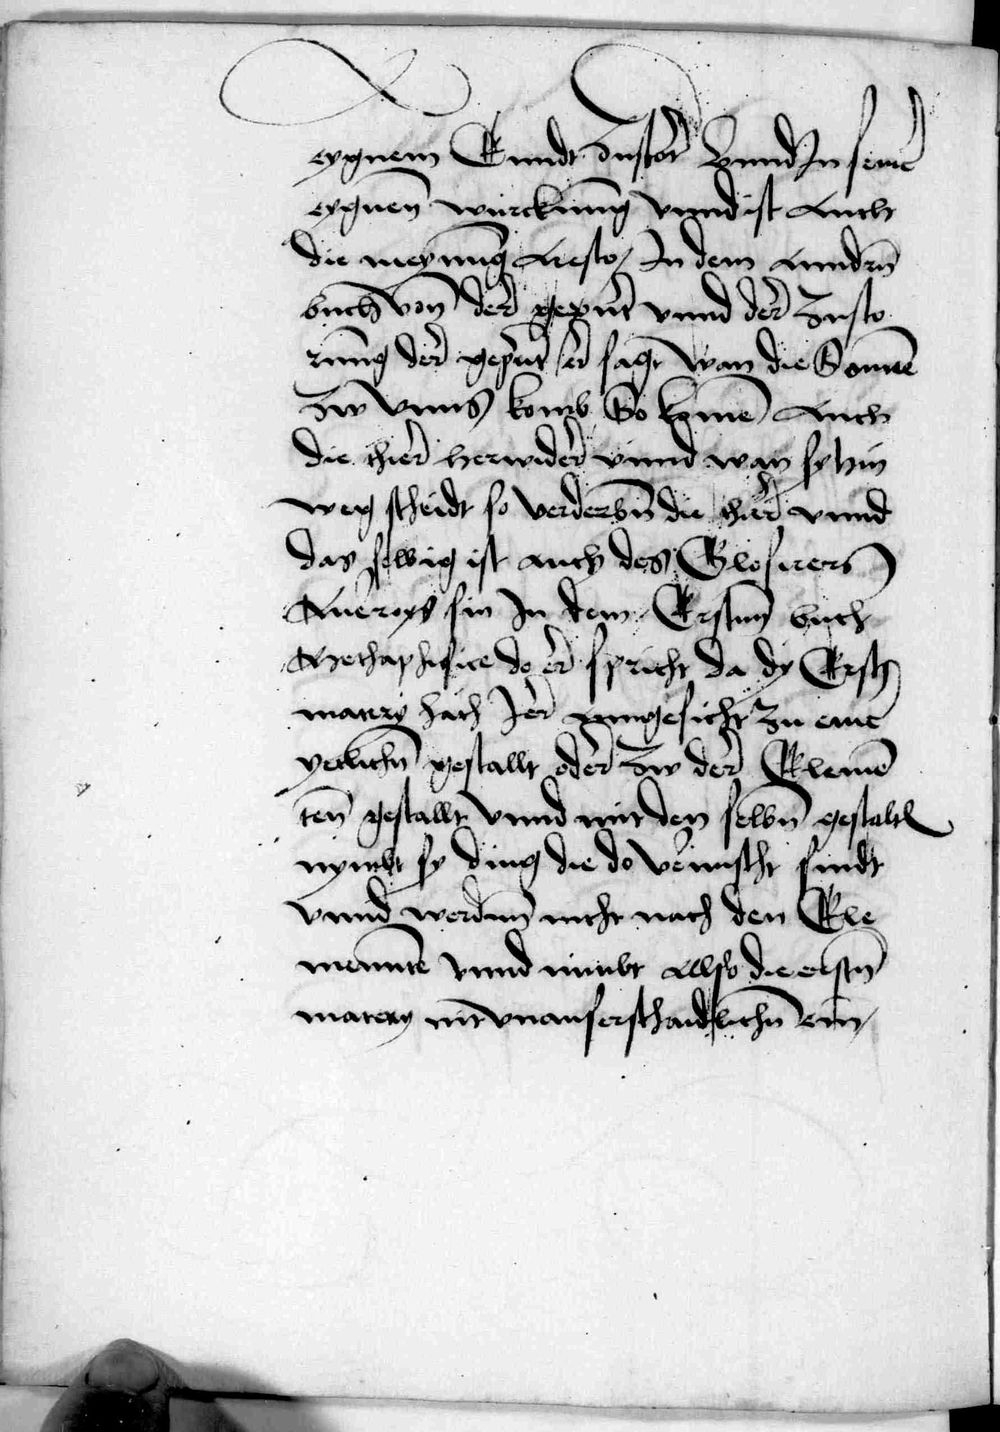 eygnem Grundt zustort Vnnd In seiner
eygnen würckung vnnd ist Auch
die meynung Aresto / In dem Anndrn
buch von der gepurt vnnd der zusto
rung der gepurt / er sagt wan die Sonne
zw vnns komb So komen Auch
die thier herwider vnnd wan sy hin
weg scheidt so verderbn die thier vnnd
das selbig ist auch des Glosirers
Aueroys sin In dem Ersten buch
Methaphisice do er spricht da dy Erst
matery hath Ir angesicht zu einer
yetlichn gestallt oder zw der Elemen
ten gestallt vnnd mit den selbn gestalt
nymbt sy ding die do vermischt sindt
vnnd werdenn nicht nach den Ele
mennten vnnd nimbt Also die erstn
matery mit vnauserschaidlichn ein /